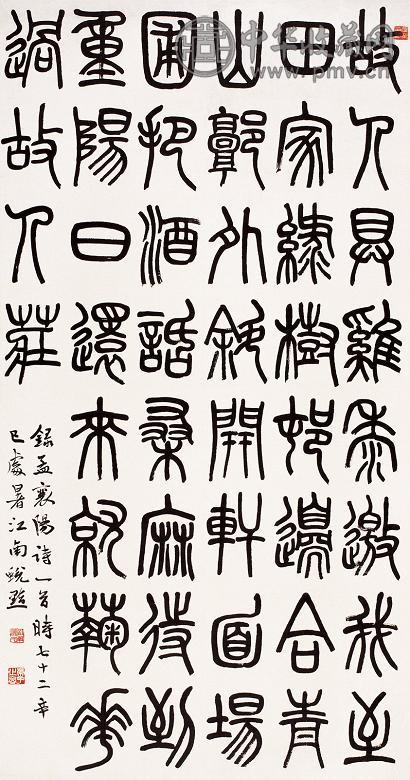 中华收藏网
www.pmv.cn
故人具雞黍邀我至
田家綠樹邨邊合青
山郭外斜開軒面場
圃把酒話桑麻待到
重陽日還來就菊花
過故人莊
錄孟襄陽詩一首時七十二辛
巳處暑江南蛻